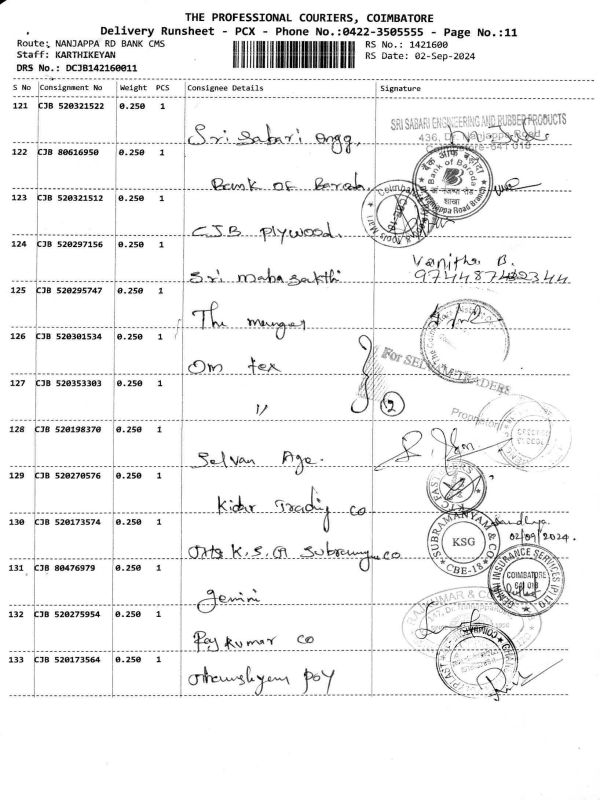 THE PROFESSIONAL COURIERS, COIMBATORE
Delivery Runsheet - PCX - Phone No.:0422-3505555 - Page No.:11
Route: NANJAPPA RD BANK CMS RS No.: 1421600
Staff: KARTHIKEYAN RS Date: 02-Sep-2024
DRS No.: DCJB142160011
S No Consignment No Weight PCS Consignee Details Signature
121 CJB 520321522 0.250 1
SRI SABARI ENGINEERING AND RUBBER PRODUCTS
436, Nanjappa Road
Coimbatore-641 018
Sri Sabari Engg,
122 CJB 80616950 0.250 1
बैंक ऑफ बड़ौदा
Bank of Baroda
शाखा
Nanjappa Road Branch
Bank of Baroda
123 CJB 520321512 0.250 1
CBE-18
C.J.B Plywood.
124 CJB 520297156 0.250 1
Vanitha B.
Sri Maha Sakthi
125 CJB 520295747 0.250 1
The
126 CJB 520301534 0.250 1
Om Tex
For SELVAM TRADERS
127 CJB 520353303 0.250 1
11 2
Proprietor
128 CJB 520198370 0.250 1
Selvan Age.
129 CJB 520270576 0.250 1
Trading Co
130 CJB 520173574 0.250 1
SUBRAMANYAM & CO
KSG
CBE-18
Sandhya
02/09/2024.
K.S.G Co
131 CJB 80476979 0.250 1
GEMINI INSURANCE SERVICES (P) LTD
COIMBATORE
641 018
Gemini
132 CJB 520275954 0.250 1
RAJKUMAR & CO
Raj Kumar Co
133 CJB 520173564 0.250 1
Poy